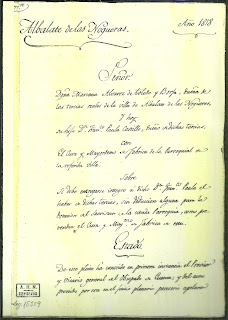 Albalate de las Nogueras.
Año 1818
Señor
Dona Mariana Alvarez de Toledo y Borja, Dueña de
las tercias reales de la villa de Albalate de las Nogueras,
Y hoy
su hijo Dn. Franco. Paula Castillo, Dueño de dichas tercias,
con
El Cura y Mayordomo de fabrica de la Parroquial de
la referida villa.
Sobre
Si debe entregarse integro á dicho Dn. Franco. Paula el
haber de dichas tercias, sin deduccion alguna para la
al servicio de la citada Parroquia, como pre-
el Cura y Maymo. de fabrica de esta.
Grado
De este pleito ha conocido en primera instancia el Provisor
y Vicario general del Obispado de Cuenca; y tal como
en el juicio plenario
A. H. N.
Leg. 15859